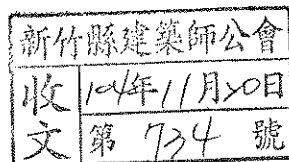 新竹縣建築師公會
收文
104年11月20日
第 734 號